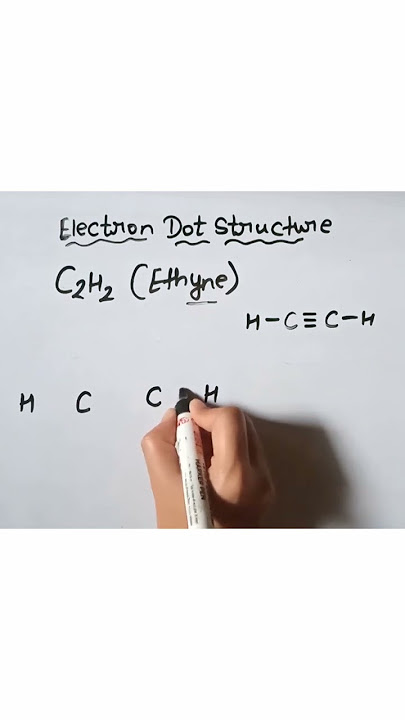 Electron Dot Structure
C₂H₂ (Ethyne)
H-C≡C-H
H C C H